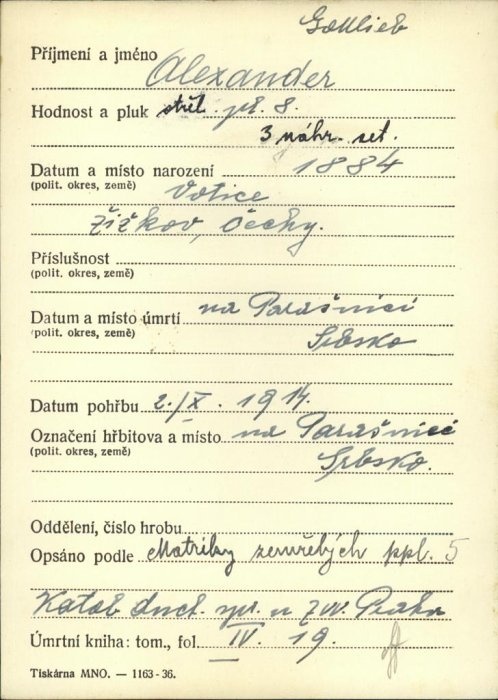 Gottlieb
Příjmení a jméno Alexander
Hodnost a pluk střel. pl. 8.
3 náhr. set.
Datum a místo narození 1884
(polit. okres, země) Votice
Žižkov, Čechy.
Příslušnost
(polit. okres, země)
Datum a místo úmrtí na Parašnici
(polit. okres, země) Srbsko
Datum pohřbu 2./X. 1914.
Označení hřbitova a místo na Parašnici
(polit. okres, země) Srbsko.
Oddělení, číslo hrobu
Opsáno podle Matriky zemřelých ppl. 5
Katol. duch. spr. u ZVV. Praha
Úmrtní kniha: tom., fol. IV. 19.
Tiskárna MNO. — 1163-36.